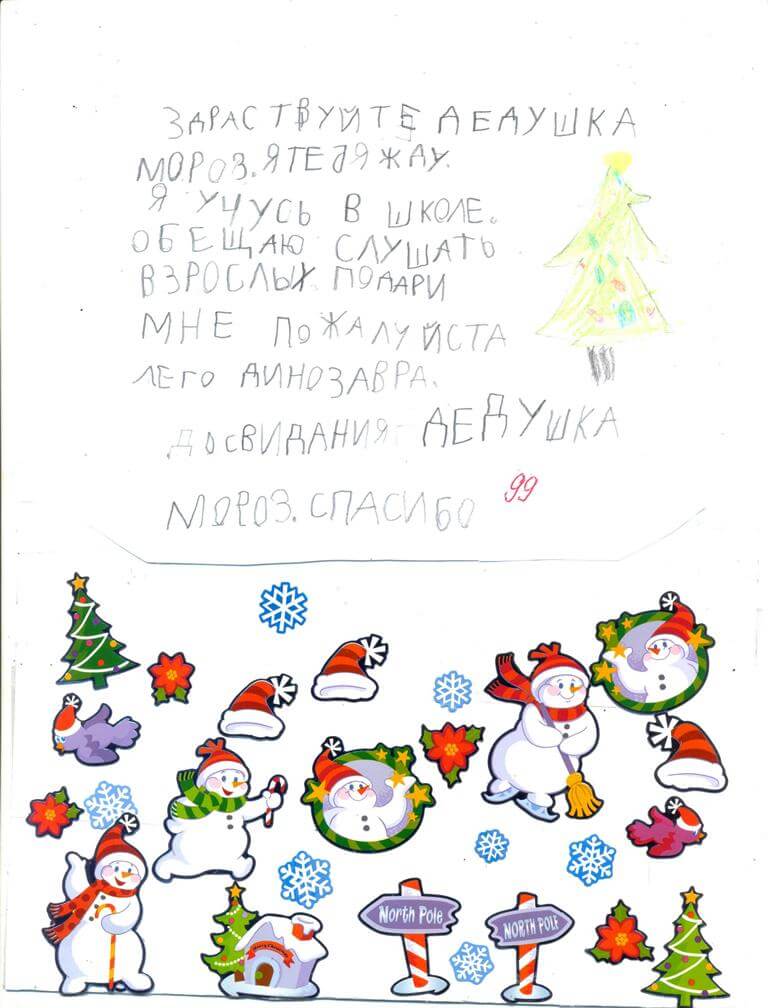 ЗДРАСТВУЙТЕ ДЕДУШКА
МОРОЗ. Я ТЕДЯ ЖДУ.
Я УЧУСЬ В ШКОЛЕ.
ОБЕЩАЮ СЛУШАТЬ
ВЗРОСЛЫХ. ПОДАРИ
МНЕ ПОЖАЛУЙСТА
ЛЕГО ДИНОЗАВРА.
ДОСВИДАНИЯ ДЕДУШКА
МОРОЗ. СПАСИБО 99
North Pole
NORTH POLE